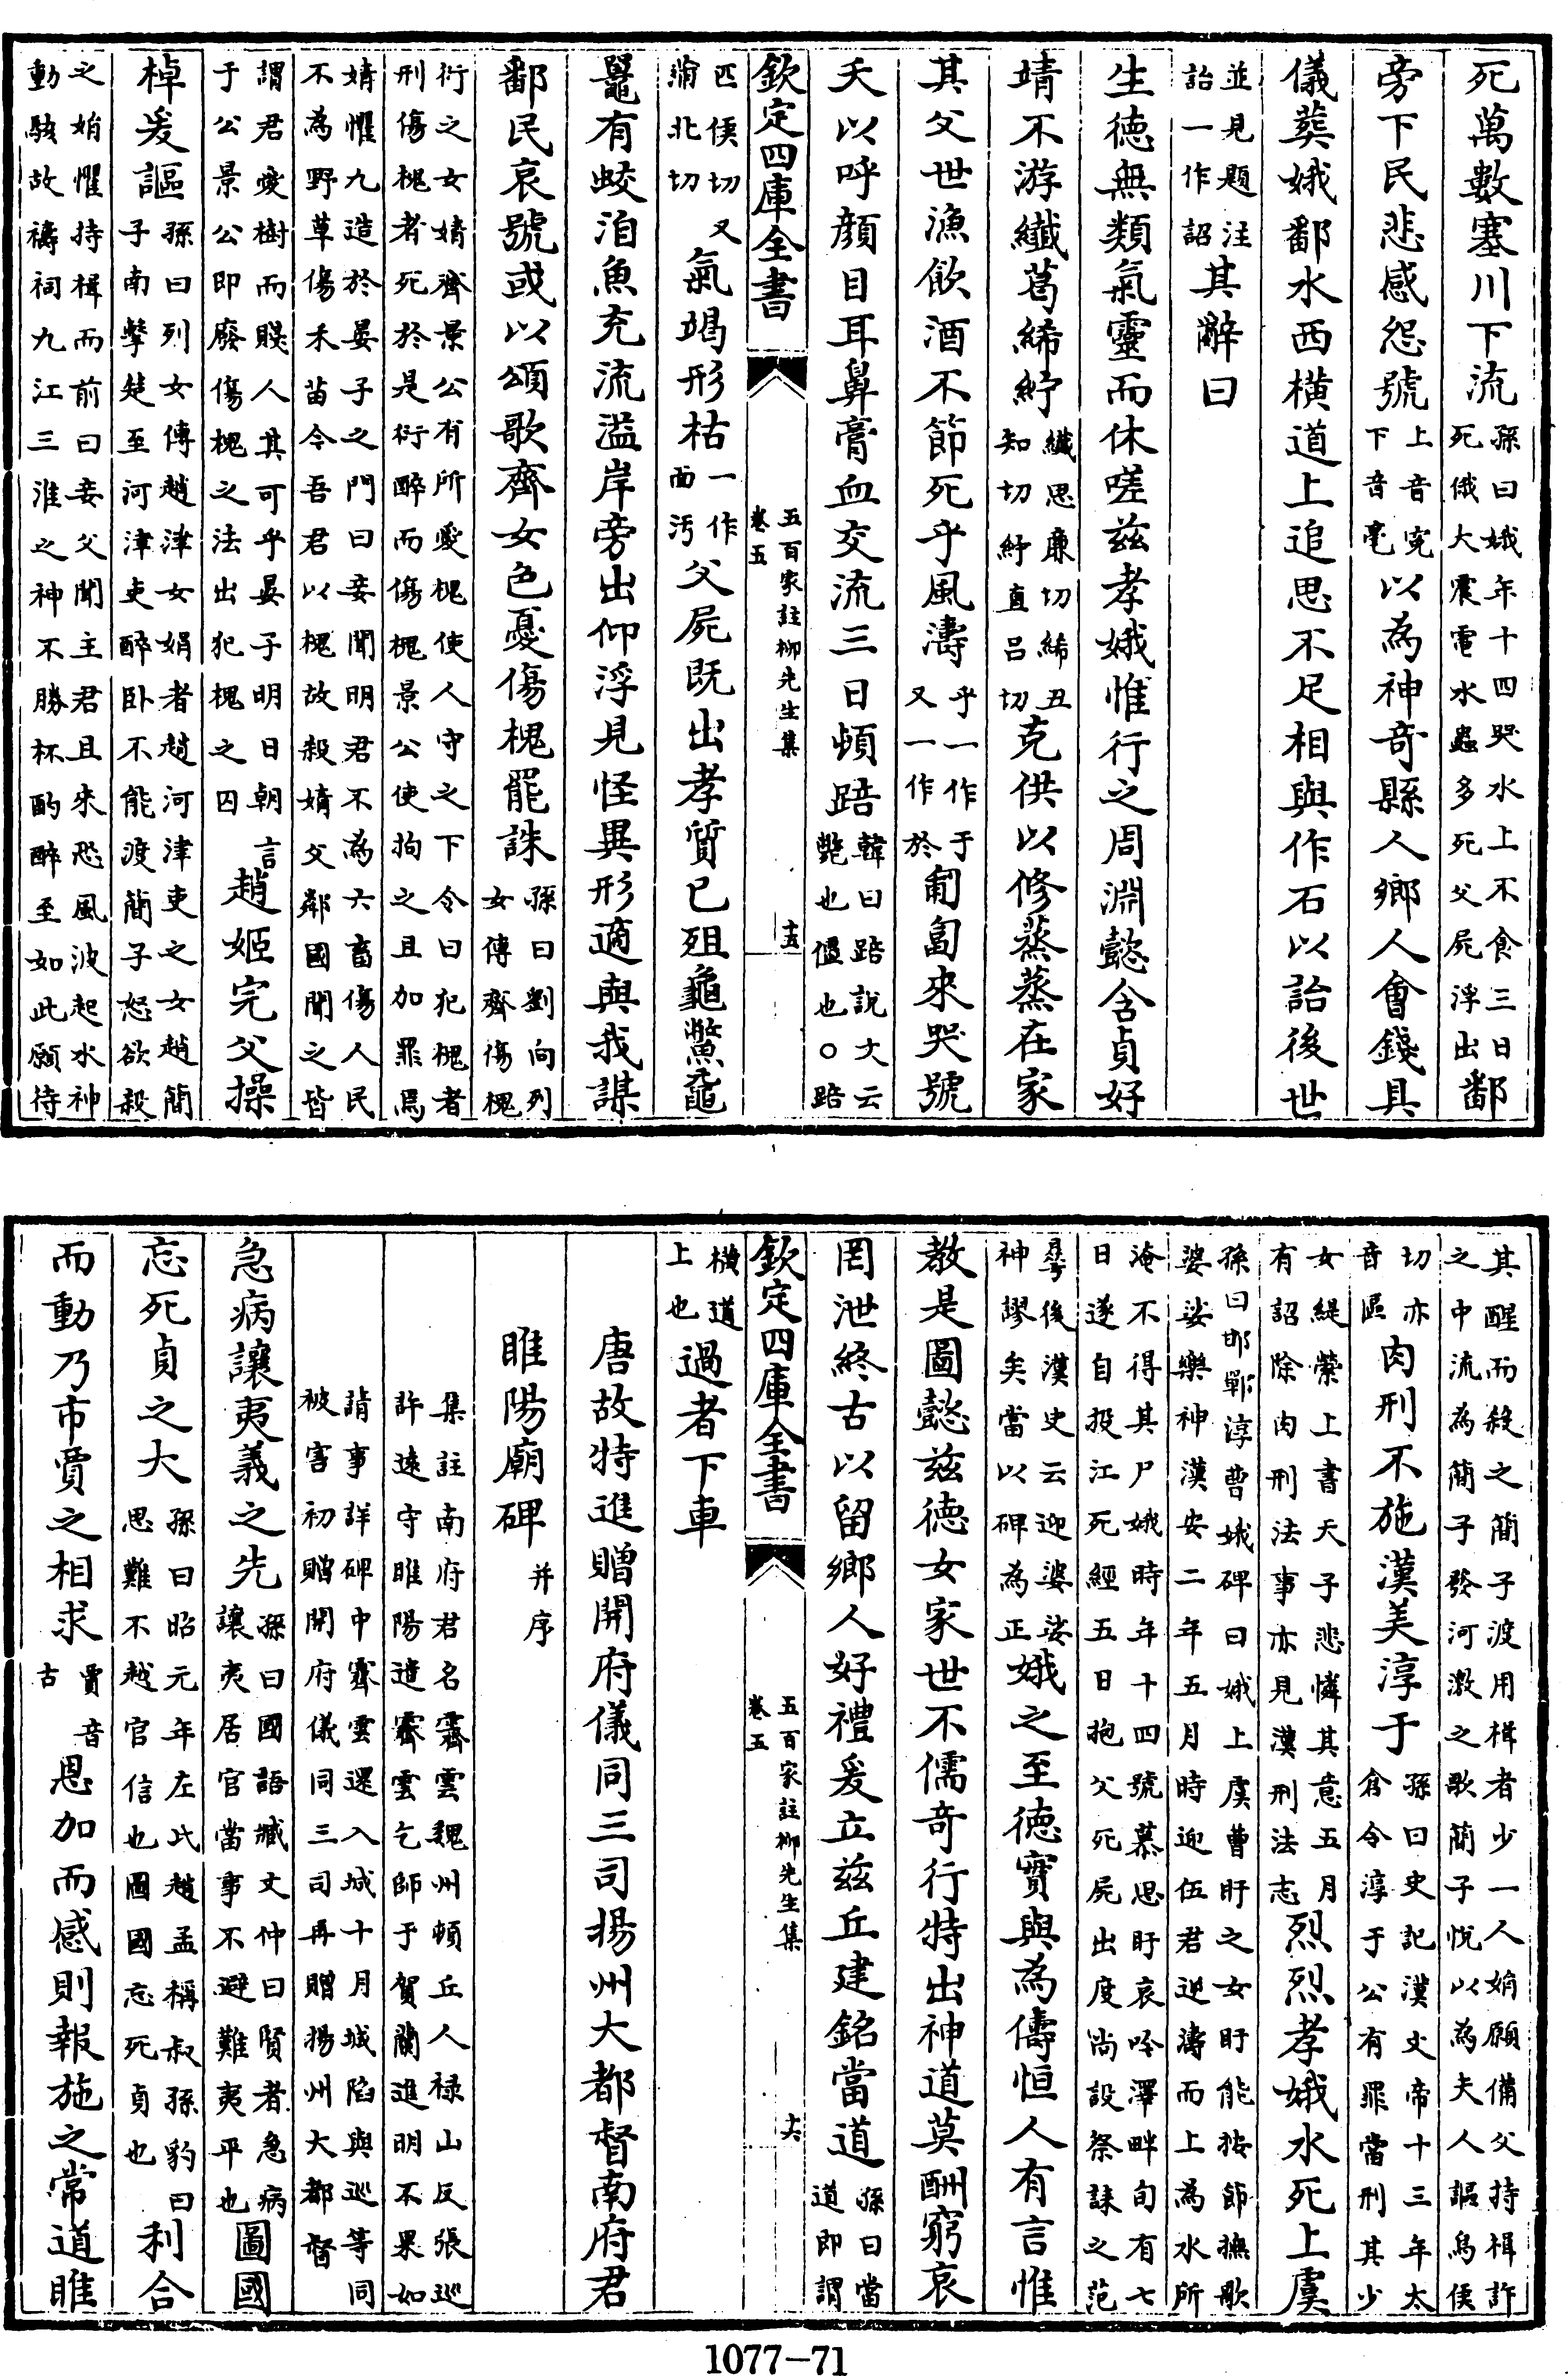 死萬數塞川下流孫曰娥年十四哭水上不食三日死俄大震電水蟲多死父屍浮出鄱
旁下民悲感怨號上音寃下音毫以為神奇縣人鄉人會錢具
儀葬娥鄱水西橫道上追思不足相與作石以詒後世
並見題注詒一作詔其辭曰
生德無類氣靈而休嗟茲孝娥惟行之周淵懿含貞好
靖不游纖葛絺紵纖思廉切絺丑知切紵直呂切克供以修蒸蒸在家
其父世漁飲酒不節死乎風濤乎一作于又一作於匍匐來哭號
天以呼顏目耳鼻膏血交流三日頓踣韓曰踣說文云斃也僵也○踣
匹候切又蒲北切氣竭形枯一作面汚父屍既出孝質已殂龜鱉黿
鼉有蛟洎魚充流溢岸旁出仰浮見怪異形適與我謀
鄱民哀號或以頌歌齊女色憂傷槐罷誅孫曰劉向列女傳齊傷槐
衍之女婧齊景公有所愛槐使人守之下令曰犯槐者刑傷槐者死於是衍醉而傷槐景公使拘之且加罪焉
婧懼九造於晏子之門曰妾聞明君不為六畜傷人民不為野草傷禾苗今吾君以槐故殺婧父鄰國聞之皆
謂君愛樹而賤人其可乎晏子明日朝言于公景公即廢傷槐之法出犯槐之囚趙姬完父操
棹爰謳孫曰列女傳趙津女娟者趙河津吏之女趙簡子南擊楚至河津吏醉卧不能渡簡子怒欲殺
之娟懼持楫而前曰妾父聞主君且來恐風波起水神動駭故禱祠九江三淮之神不勝杯酌醉至如此願待
欽定四庫全書
五百家註柳先生集
卷五
十五
其醒而殺之簡子渡用楫者少一人娟願備父持楫許之中流為簡子發河激之歌簡子悅以為夫人謳烏侯
切亦音區肉刑不施漢美淳于孫曰史記漢文帝十三年太倉令淳于公有罪當刑其少
女緹縈上書天子悲憐其意五月有詔除肉刑法事亦見漢刑法志烈烈孝娥水死上虞
孫曰邯鄲淳曹娥碑曰娥上虞曹盱之女盱能按節撫歌婆娑樂神漢安二年五月時迎伍君逆濤而上為水所
淹不得其尸娥時年十四號慕思盱哀吟澤畔旬有七日遂自投江死經五日抱父死屍出度尚設祭誄之范
曅後漢史云迎婆娑神謬矣當以碑為正娥之至德實與為儔恒人有言惟
教是圖懿茲德女家世不儒奇行特出神道莫酬窮哀
罔泄終古以留鄉人好禮爰立茲丘建銘當道孫曰當道即謂
橫道上也過者下車
唐故特進贈開府儀同三司揚州大都督南府君
睢陽廟碑并序
集註南府君名霽雲魏州頓丘人祿山反張巡許遠守睢陽遣霽雲乞師于賀蘭進明不果如
請事詳碑中霽雲還入城十月城陷與巡等同被害初贈開府儀同三司再贈揚州大都督
急病讓夷義之先孫曰國語臧文仲曰賢者急病讓夷居官當事不避難夷平也圖國
忘死貞之大孫曰昭元年左氏趙孟稱叔孫豹曰思難不越官信也圖國忘死貞也利合
而動乃市賈之相求賈音古恩加而感則報施之常道睢
欽定四庫全書
五百家註柳先生集
卷五
十六
1077-71